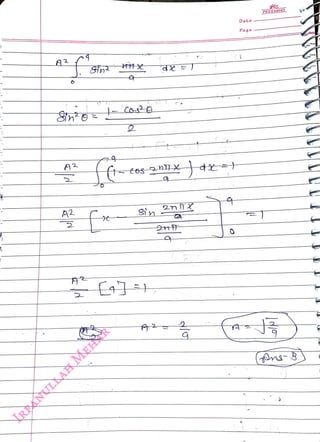 Date
Page
A² ∫₀^a sin² nπx/a dx = 1
sin²θ = 1 - cos²θ / 2
A²/2 ∫₀^a (1 - cos 2nπx/a) dx = 1
A²/2 [x - sin 2nπx/a / 2nπ/a]₀^a = 1
A²/2 [a] = 1
A² = 2/a A = √2/a
Ans- B
IRFANULLAH MEHAR